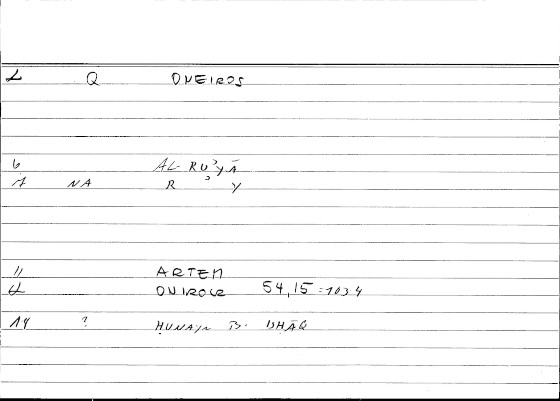 2 Q ONEIROS
6 AL-RUʾYĀ
A NA R ʾ Y
11 ARTEM
ONIROCR 54,15=1034
14 ? ḤUNAYN B. ISḤĀQ